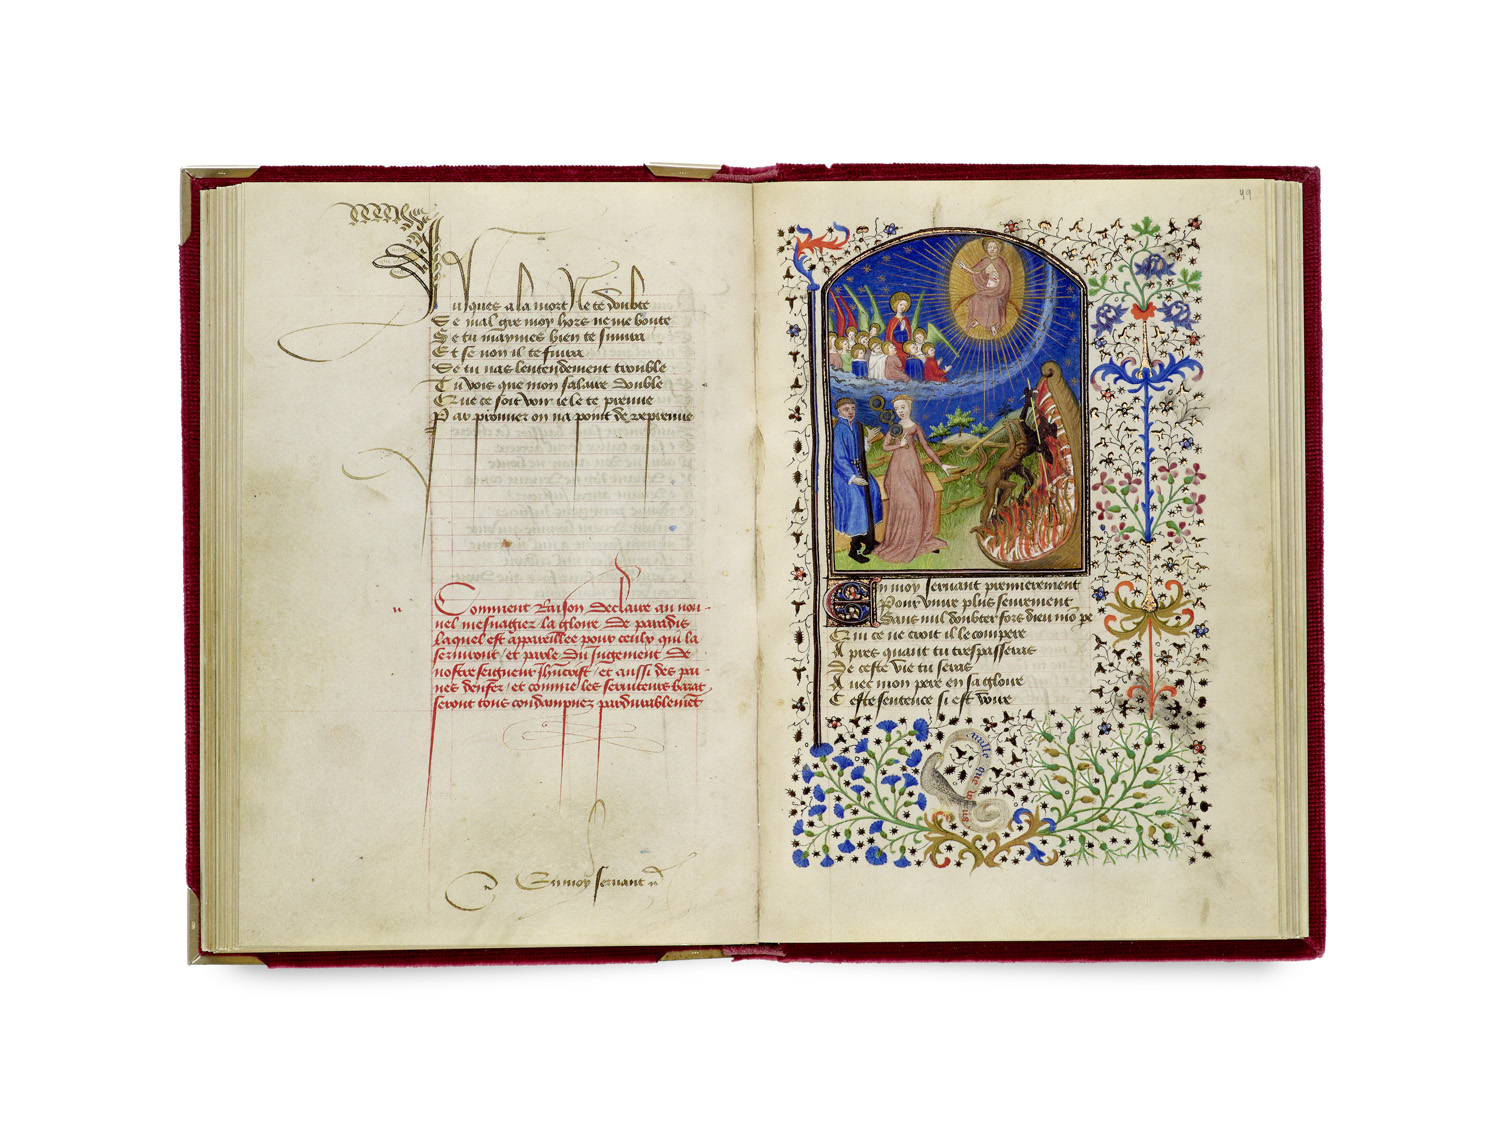 Jusques a la mort Je te doubte
Se mal gre moy hors ne me boute
Se tu maymes bien te suivra
Et se non il te fuira
Se tu nas lentendement trouble
Tu vois que mon salaire double
Que ce soit voir ie le te preuve
Par premier on na point de repreuve
Comment Raison declaire au nou-
uel mesnagier la gloire de paradis
laquel est appareillee pour ceulx qui la
seruiront / et parle du Jugement de
nostreseigneur Jhucrist / et aussi des pai-
nes denfer / et comme les seruiteurs barat
seront tous condampnez pardurablement
En moy seruant
49
En moy seruant premierement
Pour viure plus seurement
Sans nul doubter fors dieu mo pe
Qui ce ne croit il le compere
Apres quant tu trespasseras
De ceste vie tu seras
Auec mon pere en sa gloire
Ceste sentence si est voire
nulle que